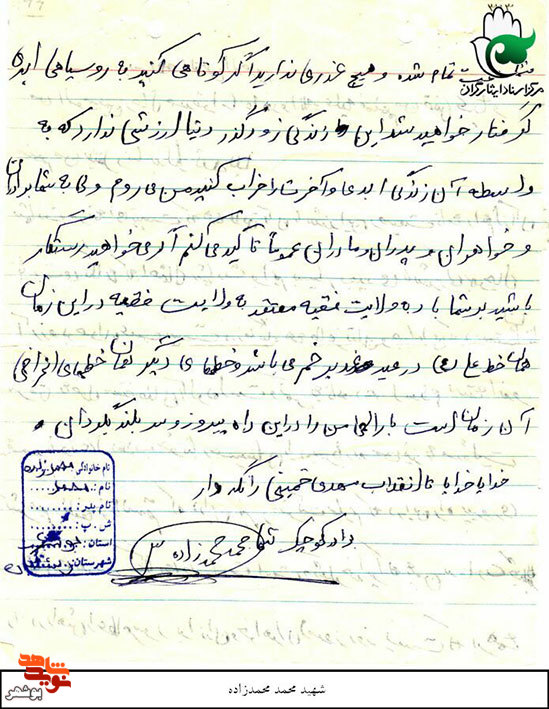 مرکز اسناد ایثارگران
تمام شده و هیچ عذری ندارید اگر کوتاهی کنید به روسیاهی ابدی
گرفتار خواهید شد این زندگی زودگذر دنیا ارزشی ندارد که به
واسطه آن زندگی ابدی و آخرت را خراب کنید من می روم ولی به شما برادران
و خواهران و پدران و مادران عموماً تأکید می کنم اگر می خواهید رستگار
باشید بر شما باد ولایت فقیه معتقد به ولایت فقیه در این زمان
همان خط علی در عید غدیر خم می باشد و خطهای دیگر همان خطهای انحرافی
آن زمان است بارالها من را در این راه پیروز و سربلند بگردان .
خدایا خدایا تا انقلاب مهدی خمینی را نگه دار
برادر کوچک شما محمد محمدزاده
نام خانوادگی محمدزاده
نام: محمد
نام پدر:
ش. پ:
استان:
شهرستان:
نوید شاهد
بوشهر
شهید محمد محمدزاده